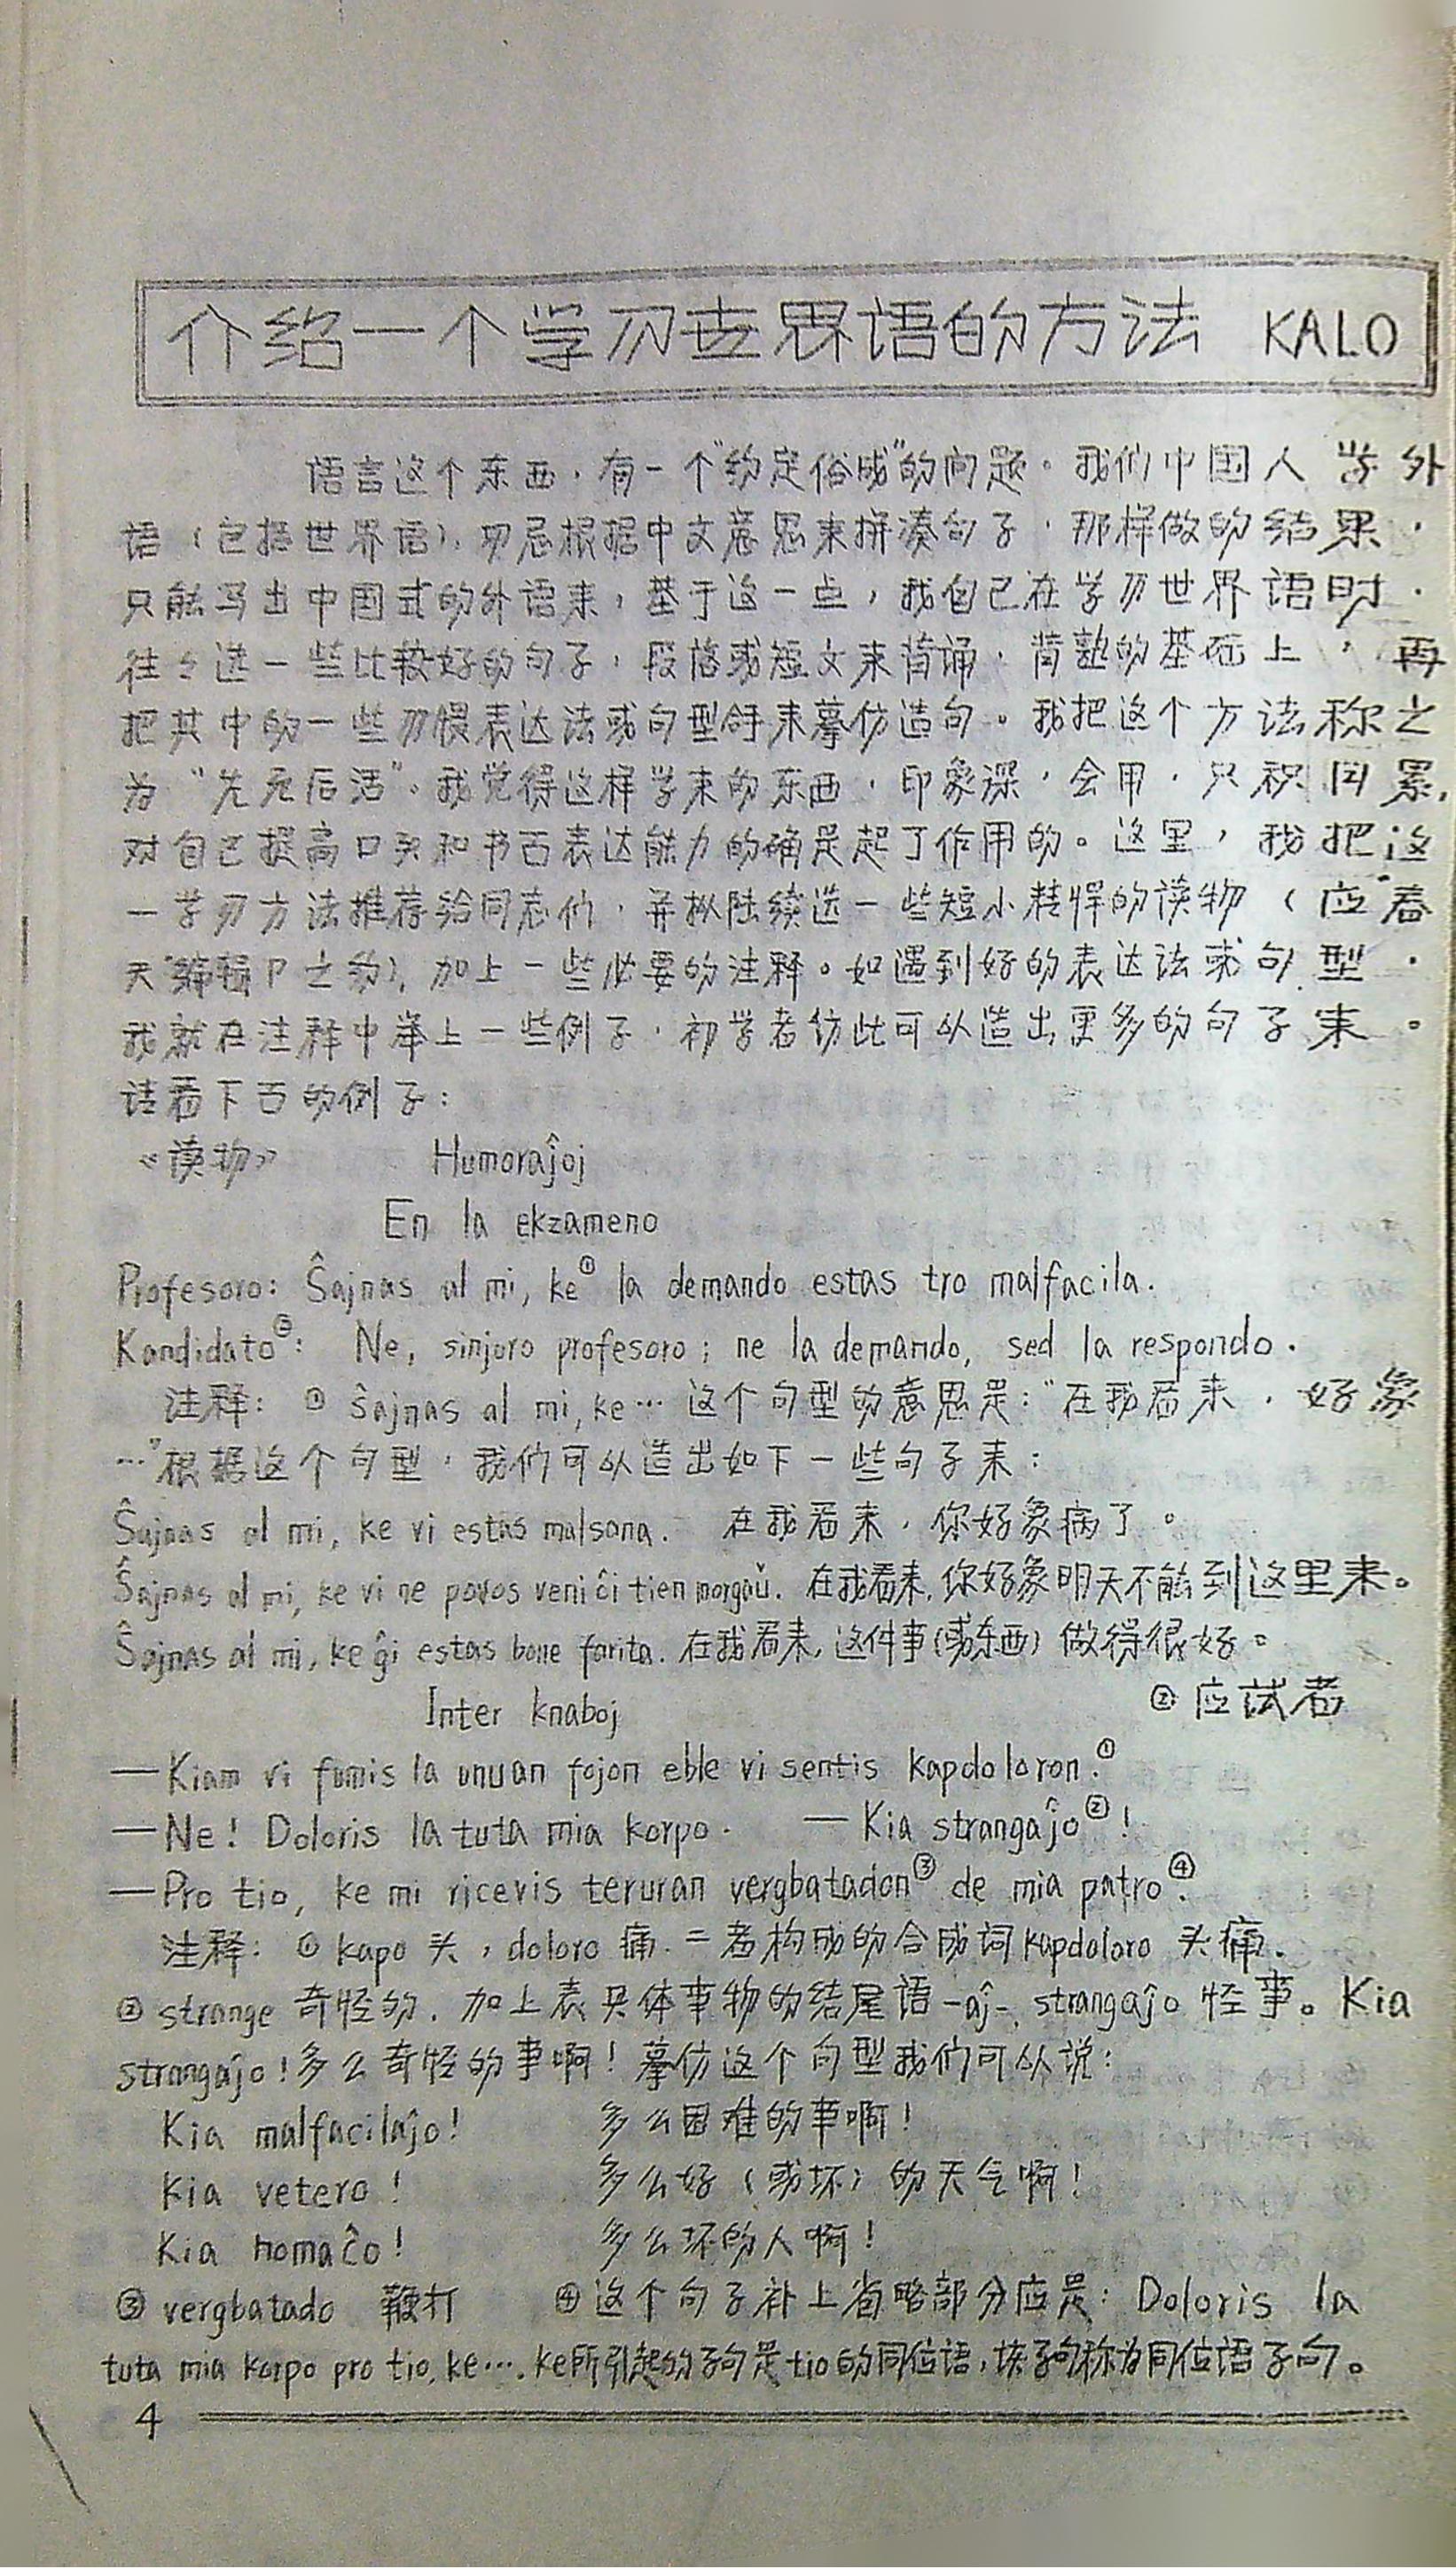 介绍一个学习世界语的方法 KALO
语言这个东西，有一个“约定俗成”的问题。我们中国人学外
语（包括世界语），切忌根据中文意思来拼凑句子，那样做的结果，
只能写出中国式的外语来，基于这一点，我自己在学习世界语时，
往々选一些比较好的句子，段落或短文来背诵，背熟的基础上，再
把其中的一些习惯表达法或句型拿来摹仿造句。我把这个方法称之
为“先死后活”。我觉得这样学来的东西，印象深，会用，只积日累，
对自己提高口头和书面表达能力的确是起了作用的。这里，我把这
一学习方法推荐给同志们，并拟陆续选一些短小精悍的读物（应“春
天”编辑 P 之约），加上一些必要的注释。如遇到好的表达法或句型，
我就在注释中举上一些例子，初学者仿此可以造出更多的句子来。
请看下面的例子：
《读物》 Humoraĵoj
En la ekzameno
Profesoro: Ŝajnas al mi, ke① la demando estas tro malfacila.
Kandidato②: Ne, sinjoro profesoro; ne la demando, sed la respondo.
注释：① ŝajnas al mi, ke… 这个句型的意思是：“在我看来，好象
…”根据这个句型，我们可以造出如下一些句子来：
Ŝajnas al mi, ke vi estas malsana. 在我看来，你好象病了。
Ŝajnas al mi, ke vi ne povos veni ĉi tien morgaŭ. 在我看来，你好象明天不能到这里来。
Ŝajnas al mi, ke ĝi estas bone farita. 在我看来，这件事（或东西）做得很好。
Inter knaboj ② 应试者
—Kiam vi fumis la unuan fojon eble vi sentis kapdoloron.①
—Ne! Doloris la tuta mia korpo. —Kia strangaĵo②!
—Pro tio, ke mi ricevis teruran vergbatadon③ de mia patro④.
注释：① kapo 头，doloro 痛．二者构成的合成词 kapdoloro 头痛．
② strange 奇怪的．加上表具体事物的结尾语 -aĵ-, strangaĵo 怪事。Kia
strangaĵo！多么奇怪的事啊！摹仿这个句型我们可以说：
Kia malfacilaĵo! 多么困难的事啊！
Kia vetero! 多么好（或坏）的天气啊！
Kia homaĉo! 多么坏的人啊！
③ vergbatado 鞭打 ④这个句子补上省略部分应是：Doloris la
tuta mia korpo pro tio, ke…. ke所引起的子句是tio的同位语，该子句称为同位语子句。
4